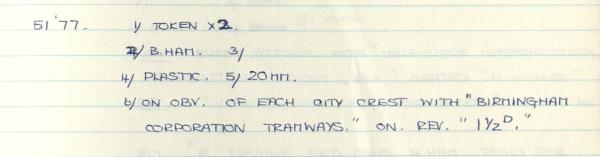 51'77. 1/ TOKEN x2.
2/ B.HAM. 3/
4/ PLASTIC. 5/ 20MM.
6/ ON OBV. OF EACH CITY CREST WITH "BIRMINGHAM
CORPORATION TRAMWAYS." ON. REV. "1½D."